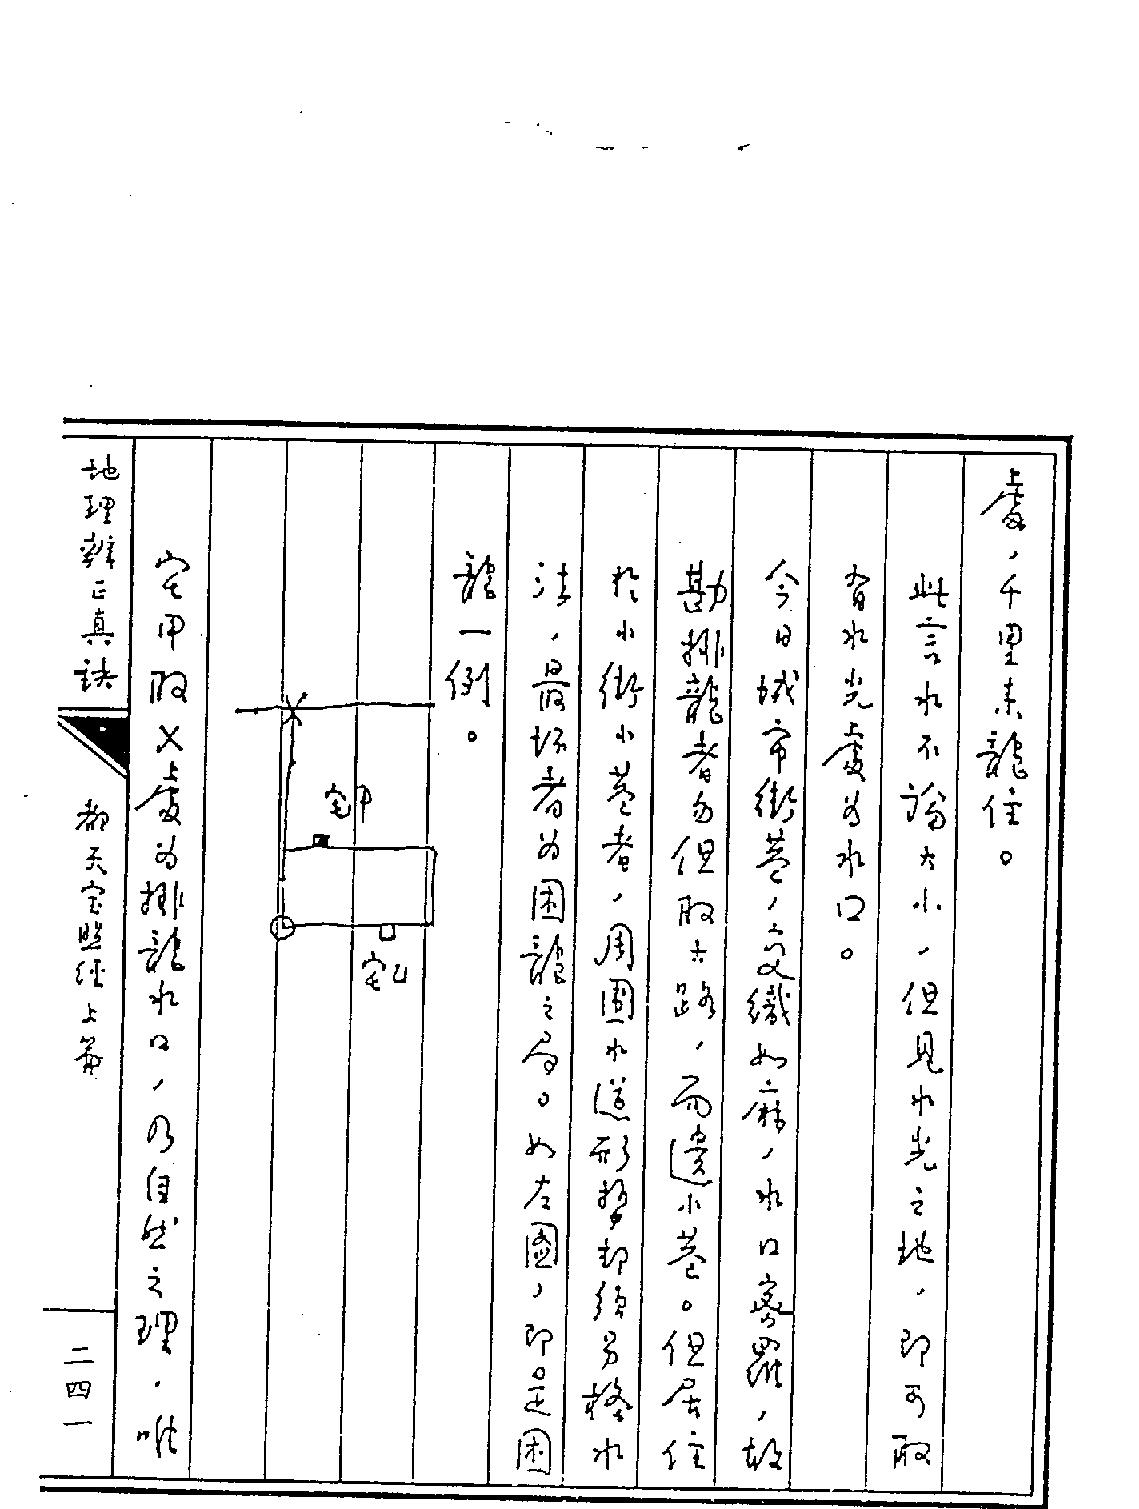 處，千里來龍住。
此言水不論大小，但見水光之地，即可取
有水光處為水口。
今日城市街巷，交織如麻，水口密羅，故
勘排龍者勿但取大路，而遺小巷。但居住
於小街小巷者，周圍水道形勢却須另格水
法，最壞者為困龍之局。如左圖，即是困
龍一例。
宅甲
宅乙
宅甲取×處為排龍水口，乃自然之理，唯
地理辨正真訣
都天寶照經上篇
二四一